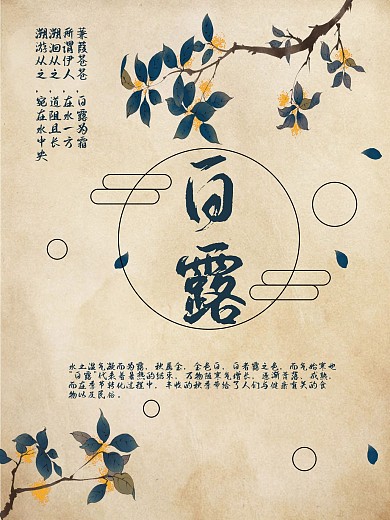 蒹葭苍苍，白露为霜
所谓伊人，在水一方
溯洄从之，道阻且长
溯游从之，宛在水中央
白露
水土湿气凝而为露，秋属金，金色白，白者露之色，而气始寒也
“白露”代表着暑热的结束，万物随寒气增长，逐渐萧落，成熟，
而在季节转化过程中，丰收的秋季带给了人们与健康有关的食
物以及民俗。